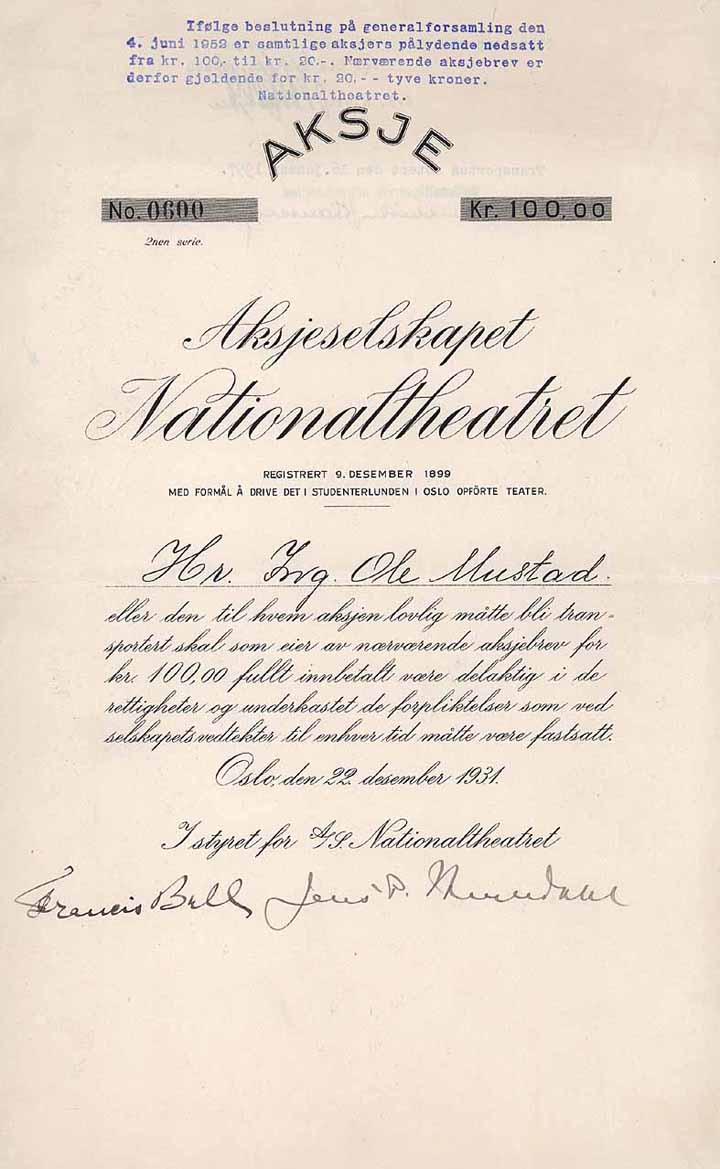 Ifølge beslutning på generalforsamling den
4. juni 1952 er samtlige aksjers pålydende nedsatt
fra kr. 100,- til kr. 20.-. Nærværende aksjebrev er
derfor gjeldende for kr. 20.-- tyve kroner.
Nationaltheatret.
AKSJE
No. 0600
Kr. 100,00
2nen serie.
Aksjeselskapet
Nationaltheatret
REGISTRERT 9. DESEMBER 1899
MED FORMÅL Å DRIVE DET I STUDENTERLUNDEN I OSLO OPFÖRTE TEATER.
Hr. Ing. Ole Mustad.
eller den til hvem aksjen lovlig måtte bli tran-
sportert skal som eier av nærværende aksjebrev for
kr. 100,00 fullt innbetalt være delaktig i de
rettigheter og underkastet de forpliktelser som ved
selskapets vedtekter til enhver tid måtte være fastsatt.
Oslo, den 22. desember 1931.
I styret for A/S. Nationaltheatret
Francis Bull Jens P.